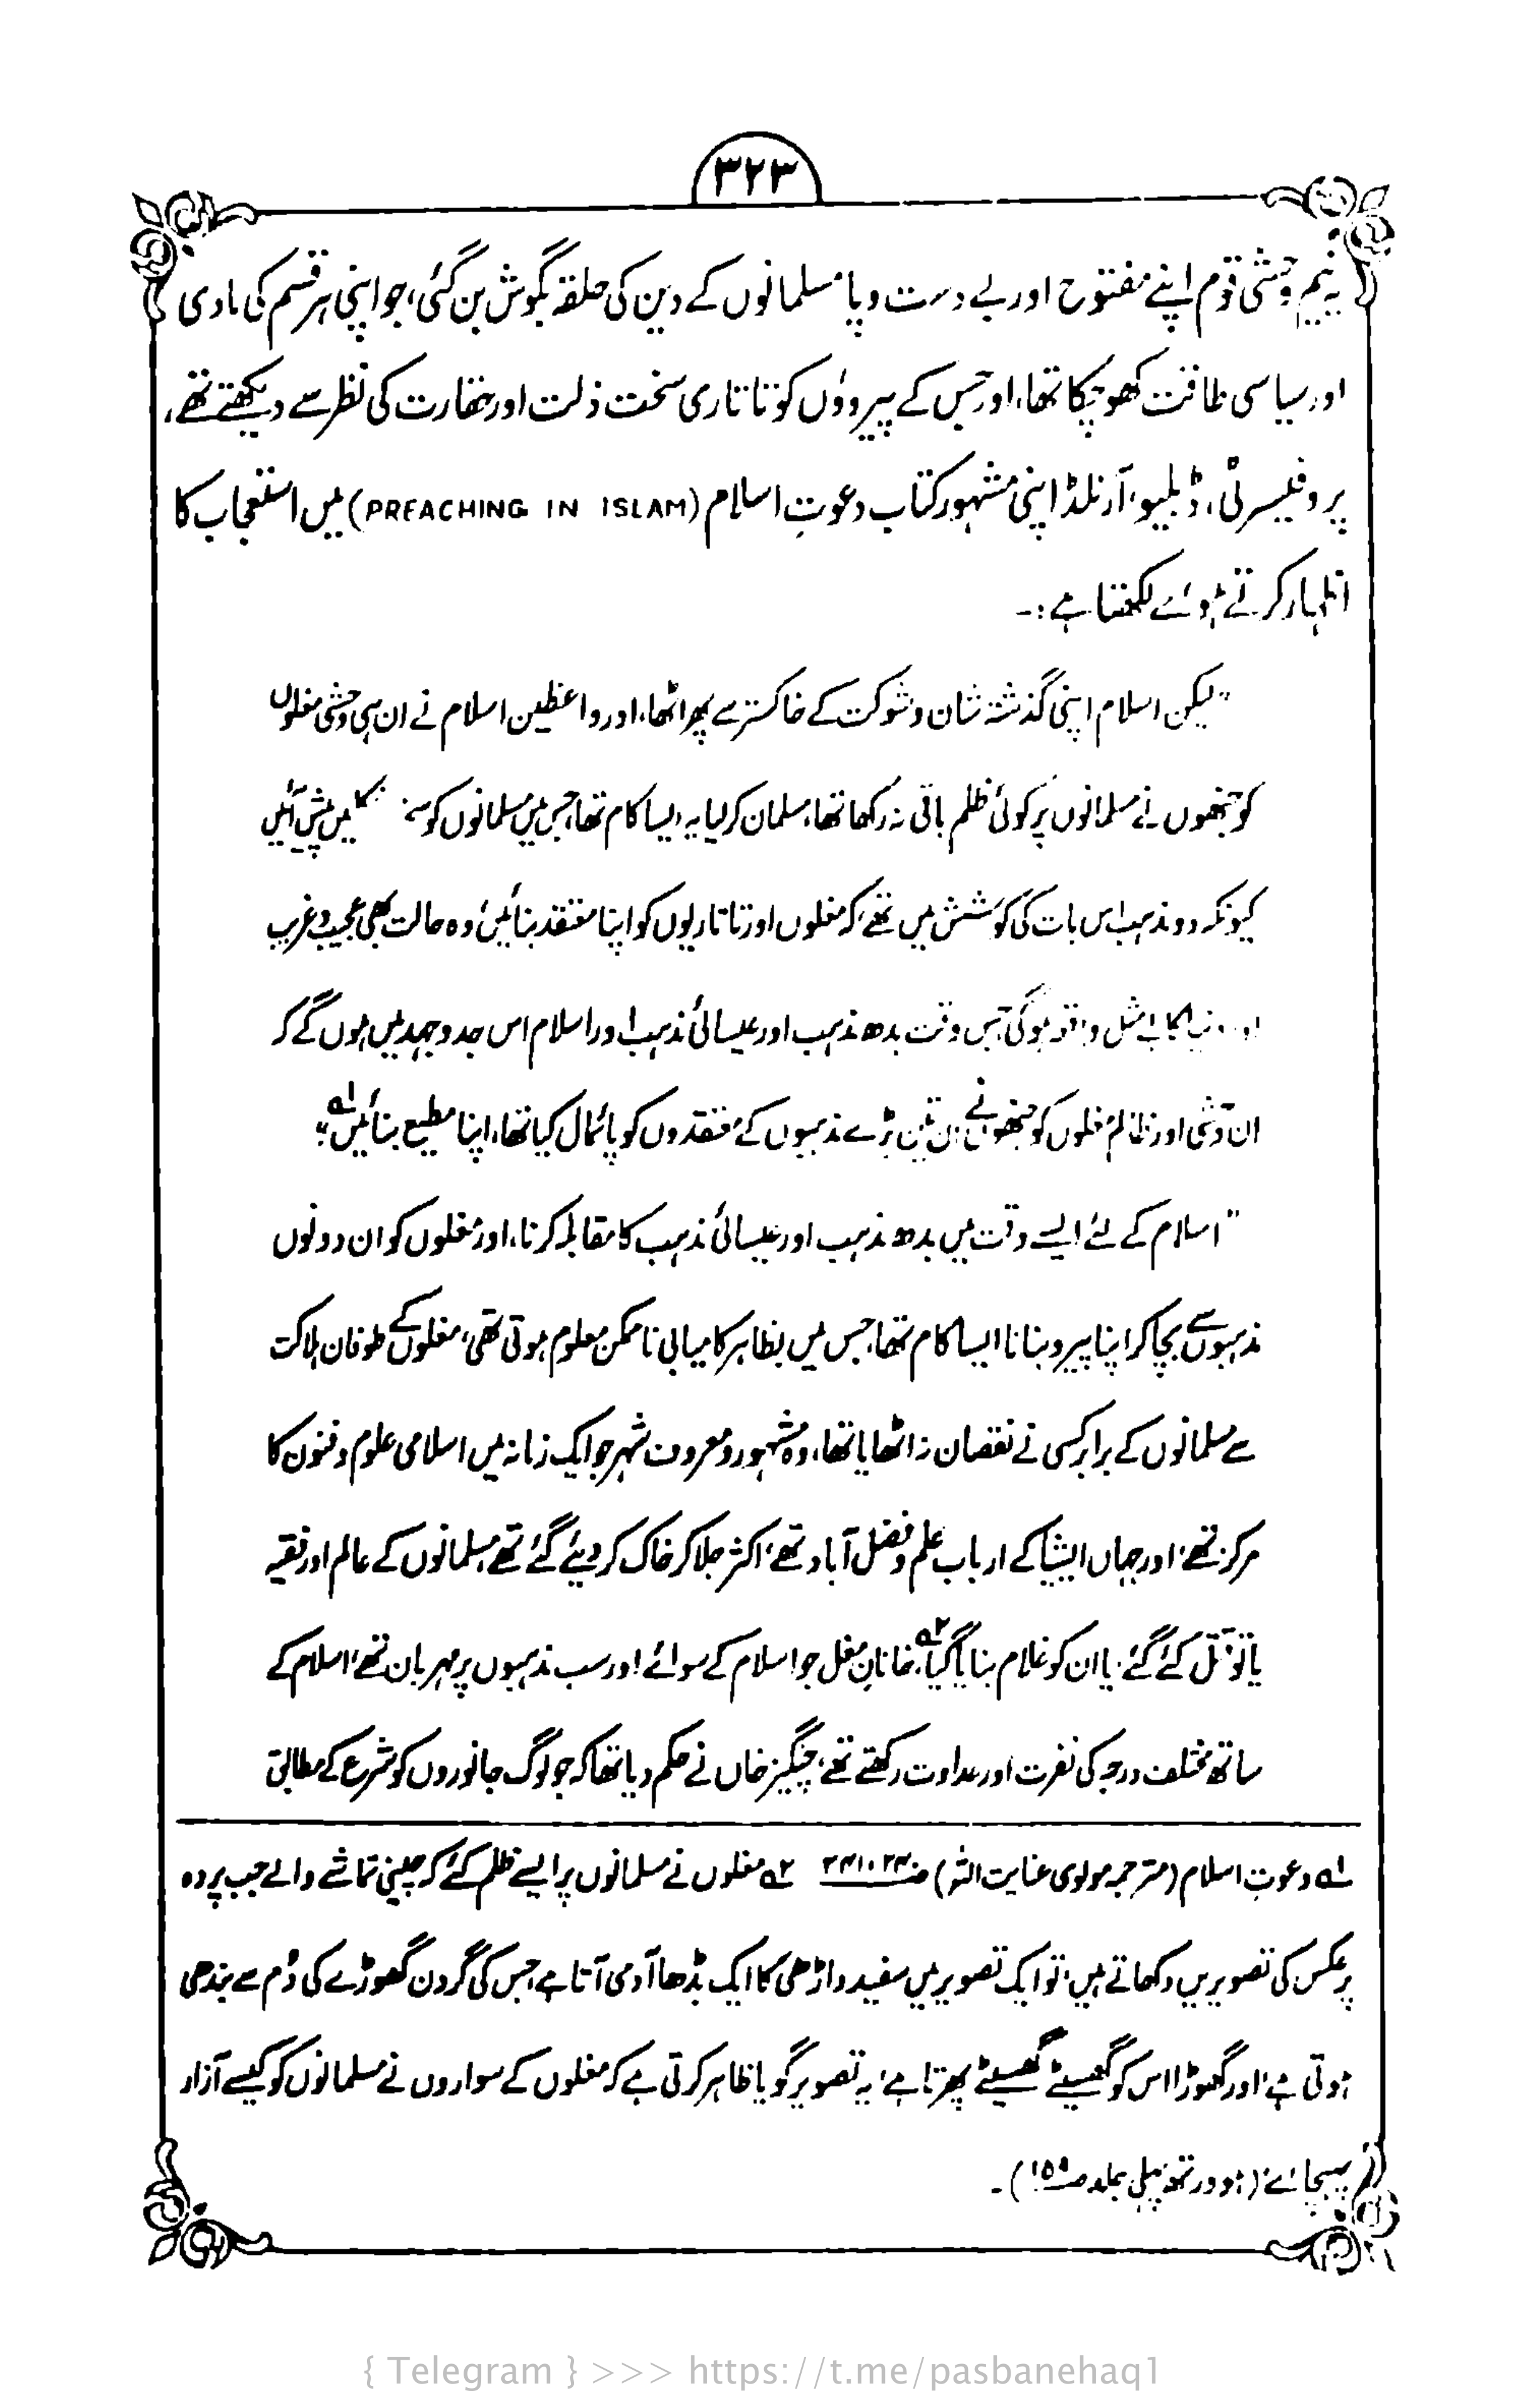 ۳۲۳
یہ نیم وحشی قوم اپنے مفتوح اور بے دست و پا مسلمانوں کے دین کی حلقہ بگوش بن گئی، جو اپنی ہر قسم کی مادی
اور سیاسی طاقت کھو چکا تھا، اور جس کے پیرووں کو تاتاری سخت ذلت اور حقارت کی نظر سے دیکھتے تھے،
پروفیسر ٹی، ڈبلیو، آرنلڈ اپنی مشہور کتاب دعوتِ اسلام (PREACHING IN ISLAM) میں استعجاب کا
اظہار کرتے ہوئے لکھتا ہے:۔
"لیکن اسلام اپنی گذشتہ شان و شوکت کے خاکستر سے پھر اٹھا، اور واعظین اسلام نے ان ہی وحشی مغلوں
کو جنھوں نے مسلمانوں پر کوئی ظلم باقی نہ رکھا تھا، مسلمان کر لیا یہ ایسا کام تھا، جس میں مسلمانوں کو پیش آئیں
کیونکہ دو مذہب اس بات کی کوشش میں تھے، کہ مغلوں اور تاتاریوں کو اپنا معتقد بنائیں، وہ حالت بھی عجیب و غریب
اور دنیا کا بے مثل واقعہ ہو گی جس وقت بدھ مذہب اور عیسائی مذہب اور اسلام اس جدوجہد میں ہوں گے کہ
ان وحشی اور ظالم مغلوں کو جنھوں نے ان تین بڑے مذہبوں کے معتقدوں کو پائمال کیا تھا، اپنا مطیع بنائیں۱؎"
"اسلام کے لئے ایسے وقت میں بدھ مذہب اور عیسائی مذہب کا مقابلہ کرنا، اور مغلوں کو ان دونوں
مذہبوں سے بچا کر اپنا پیرو بنانا ایسا کام تھا، جس میں بظاہر کامیابی ناممکن معلوم ہوتی تھی، مغلوں کے طوفان ہلاکت
سے مسلمانوں کے برابر کسی نے نقصان نہ اٹھایا تھا، وہ مشہور و معروف شہر جو ایک زمانہ میں اسلامی علوم و فنون کا
مرکز تھے، اور جہاں ایشیا کے ارباب علم و فضل آباد تھے، اکثر جلا کر خاک کر دیئے گئے تھے، مسلمانوں کے عالم اور فقیہ
یا تو قتل کئے گئے، یا ان کو غلام بنایا گیا۲؎، خانانِ مغل جو اسلام کے سوائے اور سب مذہبوں پر مہربان تھے، اسلام کے
ساتھ مختلف درجہ کی نفرت اور عداوت رکھتے تھے، چنگیز خاں نے حکم دیا تھا کہ جو لوگ جانوروں کو شرع کے مطابق
۱؎ دعوتِ اسلام (مترجمہ مولوی عنایت اللہ) ص ۲۴۱،۲۴۰ ۲؎ مغلوں نے مسلمانوں پر ایسے ظلم کئے کہ چینی تماشے والے جب پردہ
پر عکس کی تصویریں دکھاتے ہیں، تو ایک تصویر میں سفید داڑھی کا ایک بڈھا آدمی آتا ہے، جس کی گردن گھوڑے کی دُم سے بندھی
ہوتی ہے، اور گھوڑا اس کو گھسیٹے گھسیٹے پھرتا ہے، یہ تصویر گویا ظاہر کرتی ہے کہ مغلوں کے سواروں نے مسلمانوں کو کیسے آزار
پہنچائے، (ہوورتھ، پہلی جلد ص ۱۵۹)۔
{ Telegram } >>> https://t.me/pasbanehaq1